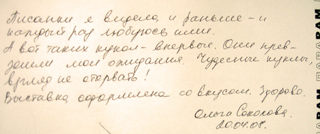 Писанки я видела и раньше - и
каждый раз любуюсь ими.
А вот таких кукол - впервые. Они прев-
зошли мои ожидания. Чудесные куклы,
взгляд не оторвать!
Выставка оформлена со вкусом. Здорово.
Ольга Соколова,
20.04.08.